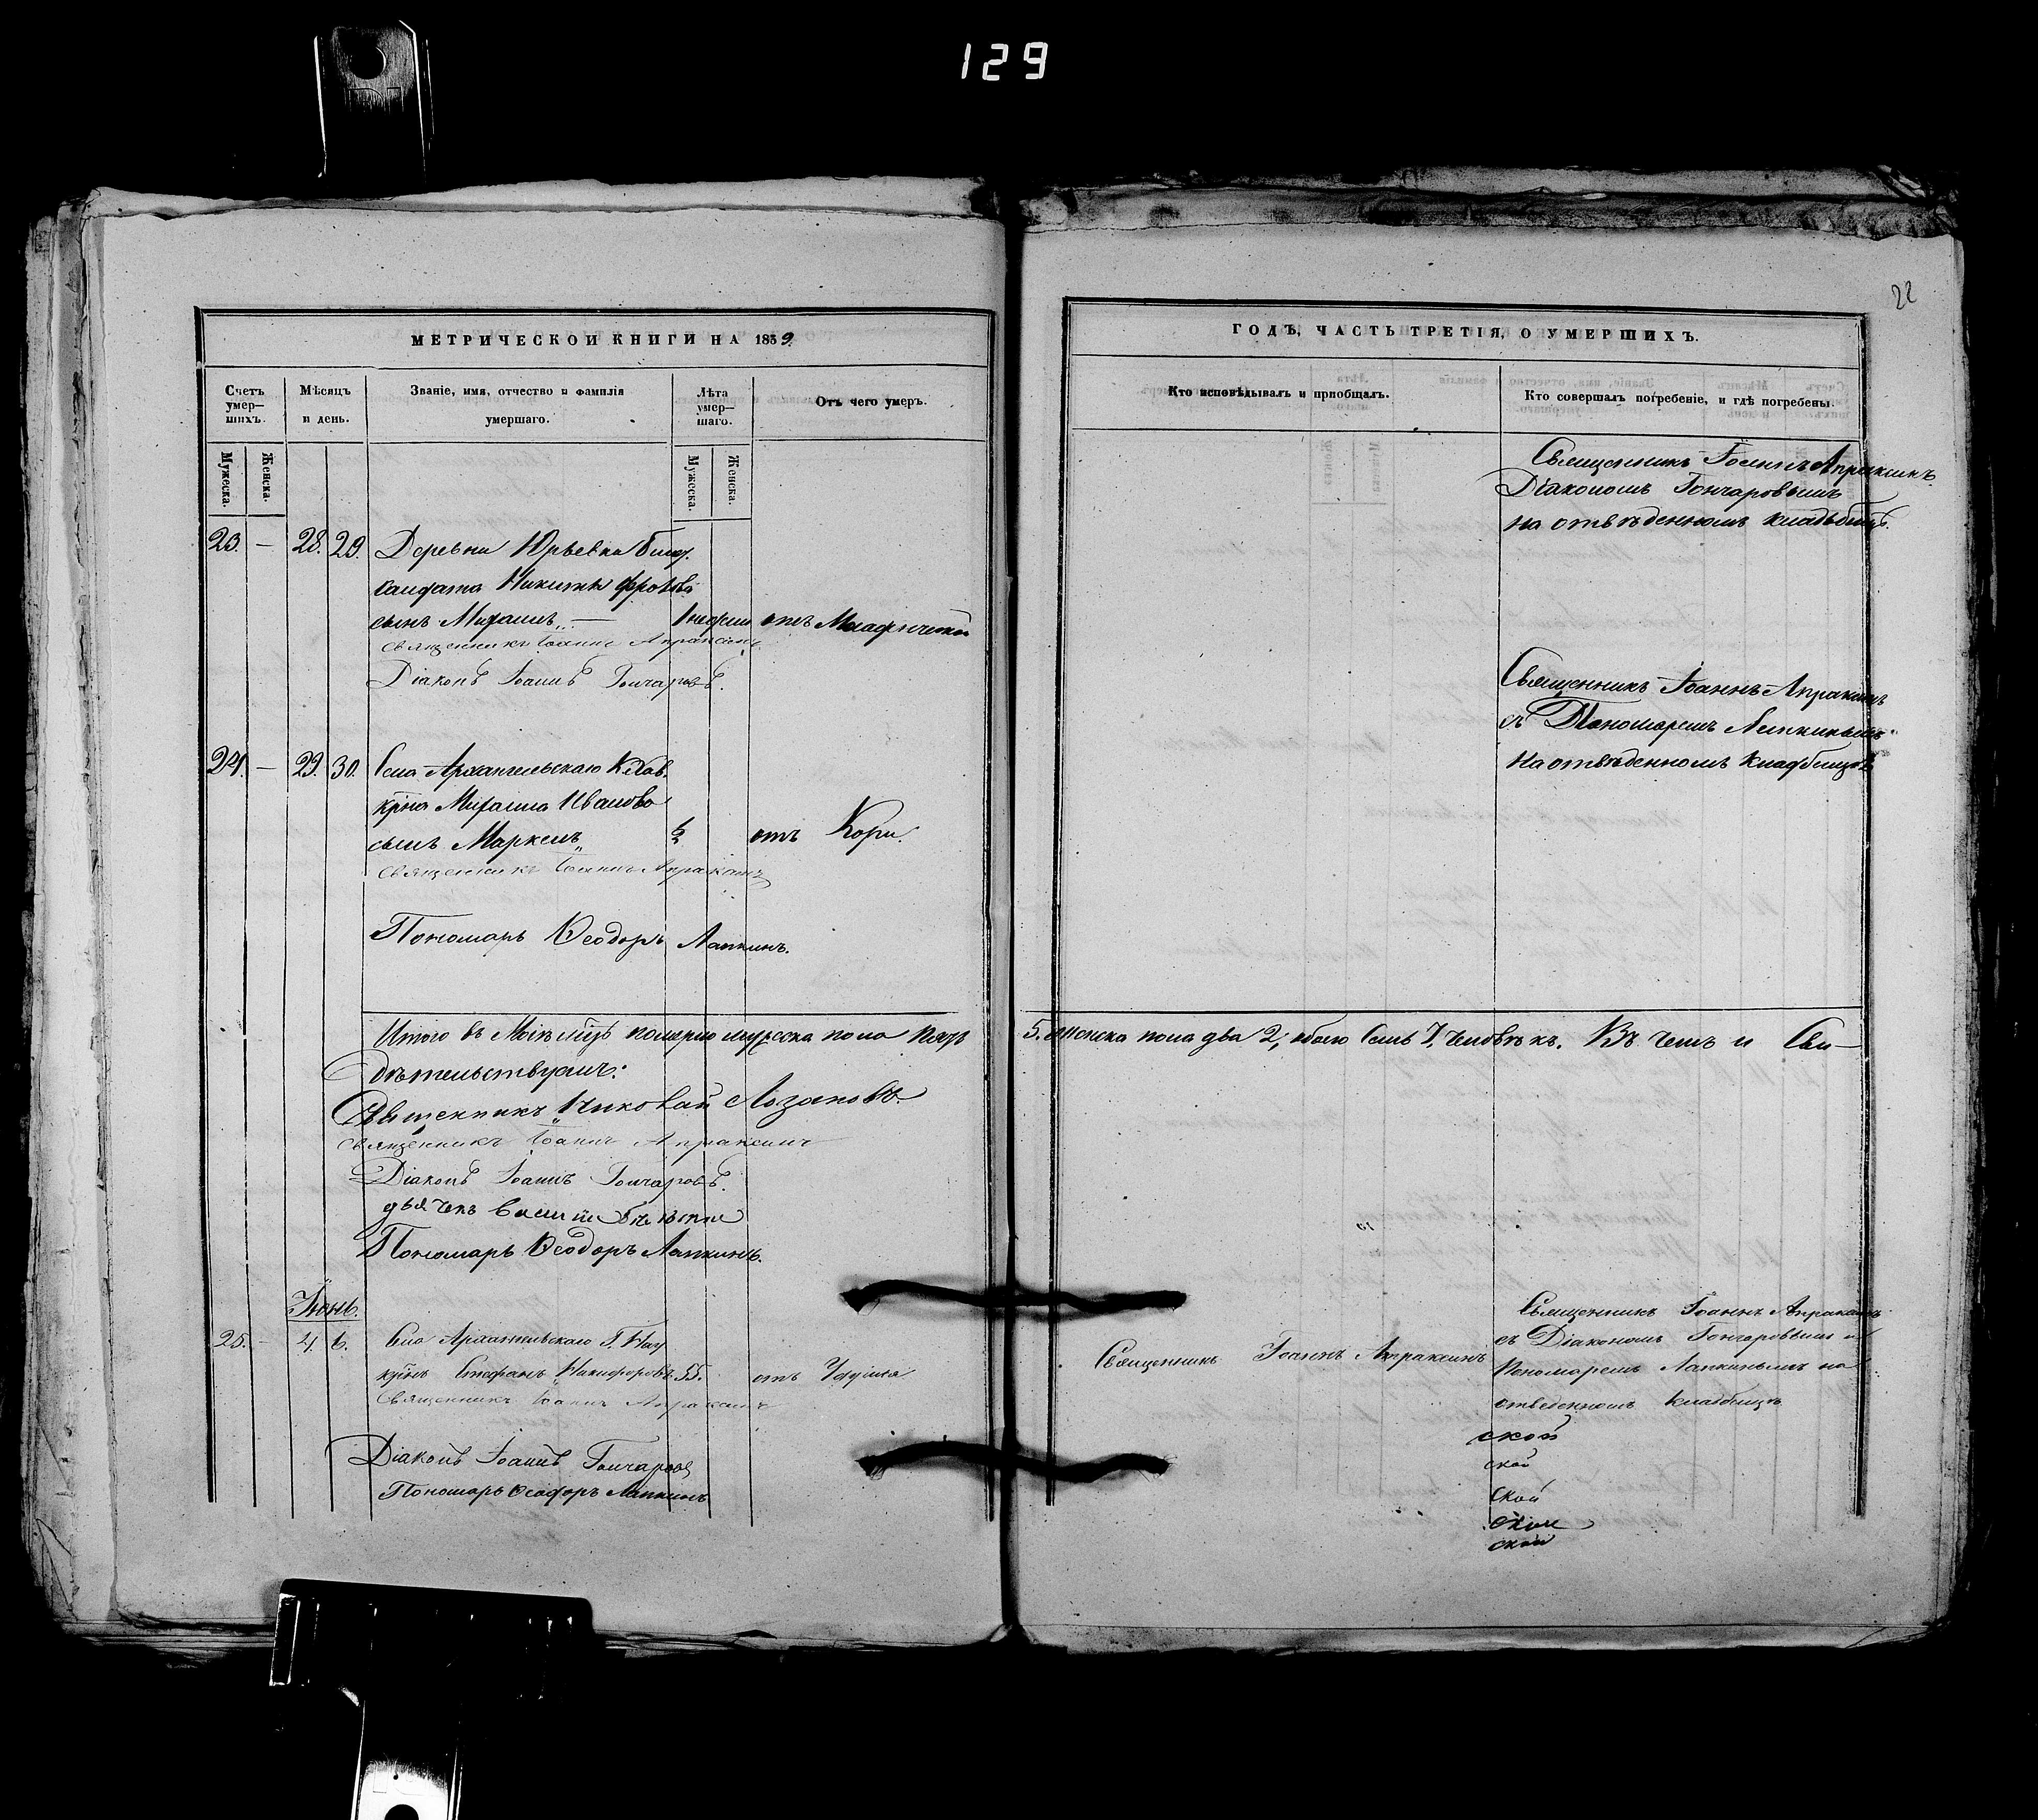 129
22
МЕТРИЧЕСКОЙ КНИГИ НА 1839
Счетъ умер—шихъ.
Мужеска.
Женска.
Мѣсяцъ и день.
Званіе, имя, отчество и фамилія умершаго.
Лѣта умер—шаго.
Мужеска.
Женска.
Отъ чего умеръ.
23. — 28. 29. Деревни Юрьевки
солдата Никиты
сынъ Михаилъ „ — 1 недѣли отъ Младенческой
Священникъ Іоаннъ Апраксинъ
Діаконъ Іоаннъ Гончаровъ.
24. — 29. 30. Села Архангельскаго
Михаила Иванова
сынъ Маркелъ „ ½ отъ Кори.
Священникъ Іоаннъ Апраксинъ
Пономарь Ѳеодоръ Лапкинъ.
Итого въ Маіѣ мѣцѣ померло мужеска пола пять
дѣтельствуемъ:
Священникъ Николай Лозановъ.
Священникъ Іоаннъ Апраксинъ
Діаконъ Іоаннъ Гончаровъ.
дьячекъ Василій
Пономарь Ѳеодоръ Лапкинъ.
Іюнь.
25. — 4. 6. Села Архангельскаго
Стефанъ Никифоровъ 55. отъ
Священникъ Іоаннъ Апраксинъ
Діаконъ Іоаннъ Гончаровъ
Пономарь Ѳеодоръ Лапкинъ
ГОДЪ, ЧАСТЬ ТРЕТІЯ, О УМЕРШИХЪ.
Кто исповѣдывалъ и пріобщалъ.
Кто совершалъ погребеніе, и гдѣ погребены.
Священникъ Іоаннъ Апраксинъ
Діакономъ Гончаровымъ
на отвѣденномъ кладбищѣ.
Священникъ Іоаннъ Апраксинъ
съ Пономаремъ Лапкинымъ
на отвѣденномъ кладбищѣ
5. женска пола два 2, обоего семь 7, человѣкъ. Въ чемъ и Сви—
Священникъ Іоаннъ Апраксинъ
Священникъ Іоаннъ Апраксинъ
съ Діакономъ Гончаровымъ и
Пономаремъ Лапкинымъ на
отведенномъ кладбищѣ
ской
ской
ской
ской
ской